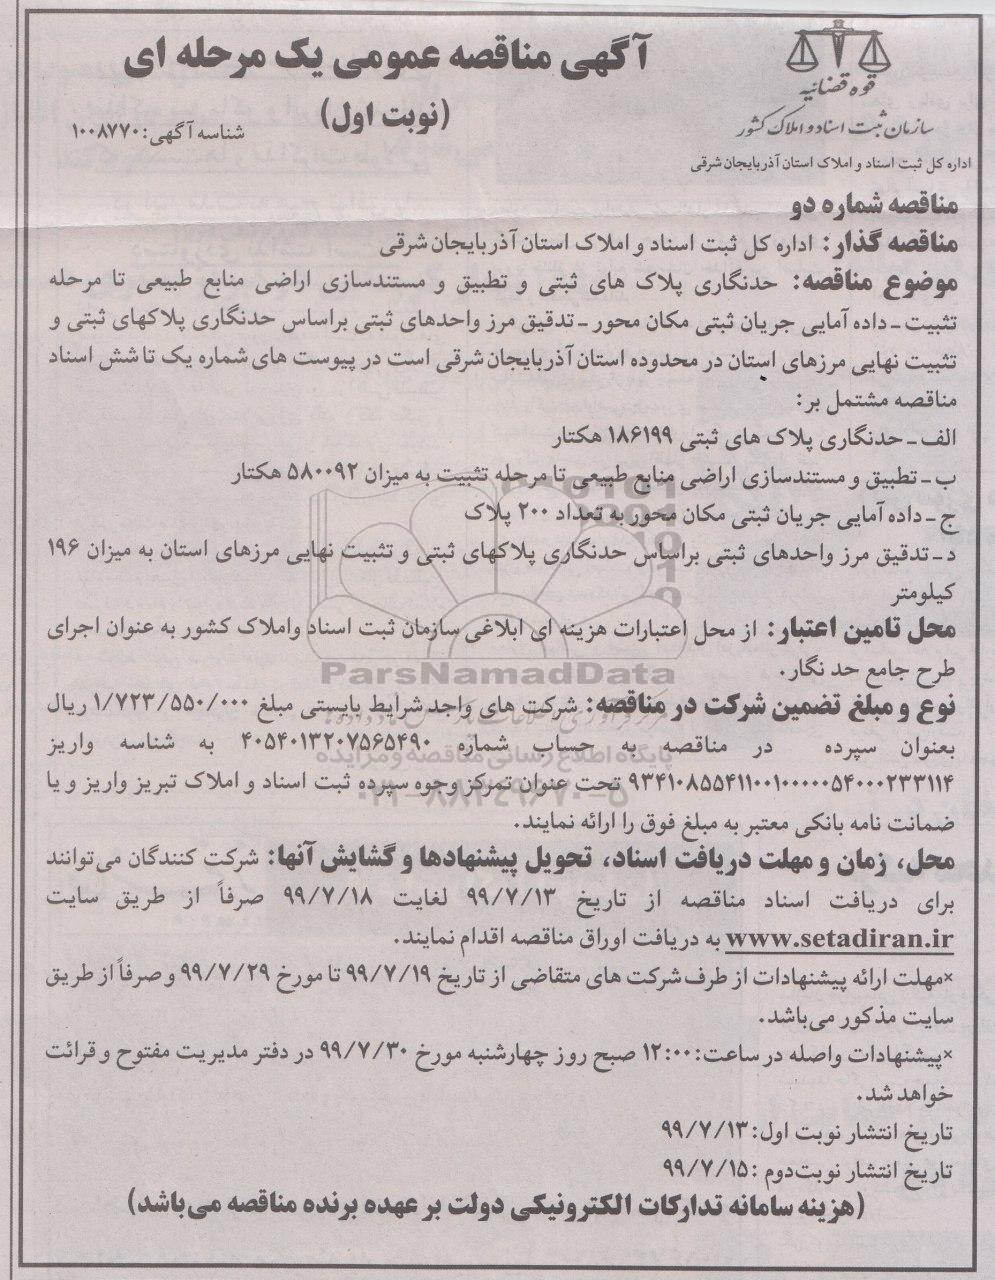 قوه قضائیه
سازمان ثبت اسناد و املاک کشور
اداره کل ثبت اسناد و املاک استان آذربایجان شرقی
آگهی مناقصه عمومی یک مرحله ای
(نوبت اول)
شناسه آگهی: ۱۰۰۸۷۷۰
مناقصه شماره دو
مناقصه گذار: اداره کل ثبت اسناد و املاک استان آذربایجان شرقی
موضوع مناقصه: حدنگاری پلاک های ثبتی و تطبیق و مستندسازی اراضی منابع طبیعی تا مرحله
تثبیت ـ داده آمایی جریان ثبتی مکان محور ـ تدقیق مرز واحدهای ثبتی براساس حدنگاری پلاکهای ثبتی و
تثبیت نهایی مرزهای استان در محدوده استان آذربایجان شرقی است در پیوست های شماره یک تا شش اسناد
مناقصه مشتمل بر:
الف ـ حدنگاری پلاک های ثبتی ۱۸۶۱۹۹ هکتار
ب ـ تطبیق و مستندسازی اراضی منابع طبیعی تا مرحله تثبیت به میزان ۵۸۰۰۹۲ هکتار
ج ـ داده آمایی جریان ثبتی مکان محور به تعداد ۲۰۰ پلاک
د ـ تدقیق مرز واحدهای ثبتی براساس حدنگاری پلاکهای ثبتی و تثبیت نهایی مرزهای استان به میزان ۱۹۶
کیلومتر
محل تامین اعتبار: از محل اعتبارات هزینه ای ابلاغی سازمان ثبت اسناد واملاک کشور به عنوان اجرای
طرح جامع حد نگار.
نوع و مبلغ تضمین شرکت در مناقصه: شرکت های واجد شرایط بایستی مبلغ ۱/۷۲۳/۵۵۰/۰۰۰ ریال
بعنوان سپرده در مناقصه به حساب شماره ۴۰۵۴۰۱۳۲۰۷۵۶۵۴۹۰ به شناسه واریز
۹۳۴۱۰۸۵۵۴۱۱۰۰۱۰۰۰۰۰۵۴۰۰۰۲۳۳۱۱۴ تحت عنوان تمرکز وجوه سپرده ثبت اسناد و املاک تبریز واریز و یا
ضمانت نامه بانکی معتبر به مبلغ فوق را ارائه نمایند.
محل، زمان و مهلت دریافت اسناد، تحویل پیشنهادها و گشایش آنها: شرکت کنندگان می‌توانند
برای دریافت اسناد مناقصه از تاریخ ۹۹/۷/۱۳ لغایت ۹۹/۷/۱۸ صرفاً از طریق سایت
www.setadiran.ir به دریافت اوراق مناقصه اقدام نمایند.
×مهلت ارائه پیشنهادات از طرف شرکت های متقاضی از تاریخ ۹۹/۷/۱۹ تا مورخ ۹۹/۷/۲۹ و صرفاً از طریق
سایت مذکور می‌باشد.
×پیشنهادات واصله در ساعت: ۱۲:۰۰ صبح روز چهارشنبه مورخ ۹۹/۷/۳۰ در دفتر مدیریت مفتوح و قرائت
خواهد شد.
تاریخ انتشار نوبت اول: ۹۹/۷/۱۳
تاریخ انتشار نوبت‌دوم : ۹۹/۷/۱۵
(هزینه سامانه تدارکات الکترونیکی دولت بر عهده برنده مناقصه می‌باشد)
ParsNamadData
پایگاه اطلاع رسانی مناقصه و مزایده